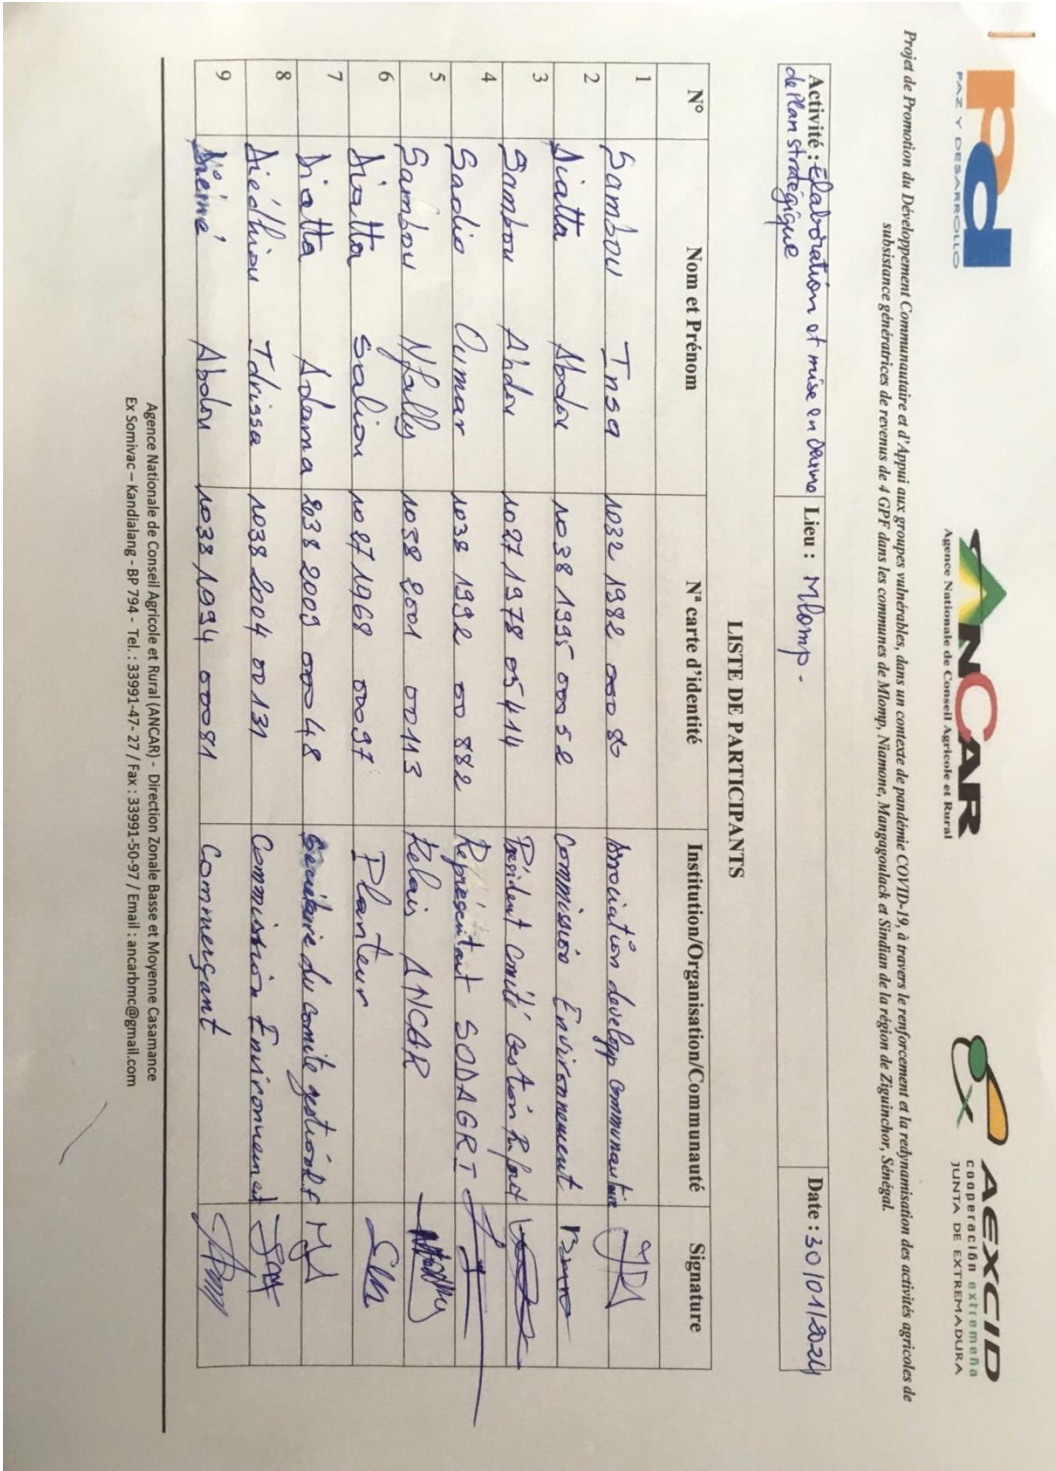 pd
PAZ Y DESARROLLO
ANCAR
Agence Nationale de Conseil Agricole et Rural
AEXCID
cooperación extremeña
JUNTA DE EXTREMADURA
Projet de Promotion du Développement Communautaire et d'Appui aux groupes vulnérables, dans un contexte de pandémie COVID-19, à travers le renforcement et la redynamisation des activités agricoles de
subsistance génératrices de revenus de 4 GPF dans les communes de Mlomp, Niamone, Mangagoulack et Sindian de la région de Ziguinchor, Sénégal.
Activité : Elaboration et mise en œuvre Lieu : Mlomp - Date : 30/01/2024
de Plan stratégique
LISTE DE PARTICIPANTS
N° Nom et Prénom Nª carte d'identité Institution/Organisation/Communauté Signature
1 Sambou Insa 1032 1982 000 86 Association develop communautaire
2 Diatta Abdou 1038 1995 00052 Commission Environnement
3 Sambou Abdou 1027 1978 05414 Président Comité Gestion
4 Sadio Oumar 1038 1992 00 882 Représentant SODAGRI
5 Sambou Nfally 1038 2001 00113 Relais ANCAR
6 Diatta Saliou 1027 1968 00097 Planteur
7 Diatta Adama 2038 2009 00048 Secrétaire du comité gestion
8 Diédhiou Idrissa 1038 2004 00131 Commission Environnement
9 Diémé Abdou 1038 1994 00081 Commerçant
Agence Nationale de Conseil Agricole et Rural (ANCAR) - Direction Zonale Basse et Moyenne Casamance
Ex Somivac – Kandialang - BP 794 - Tel. : 33991-47- 27 / Fax : 33991-50-97 / Email : ancarbmc@gmail.com